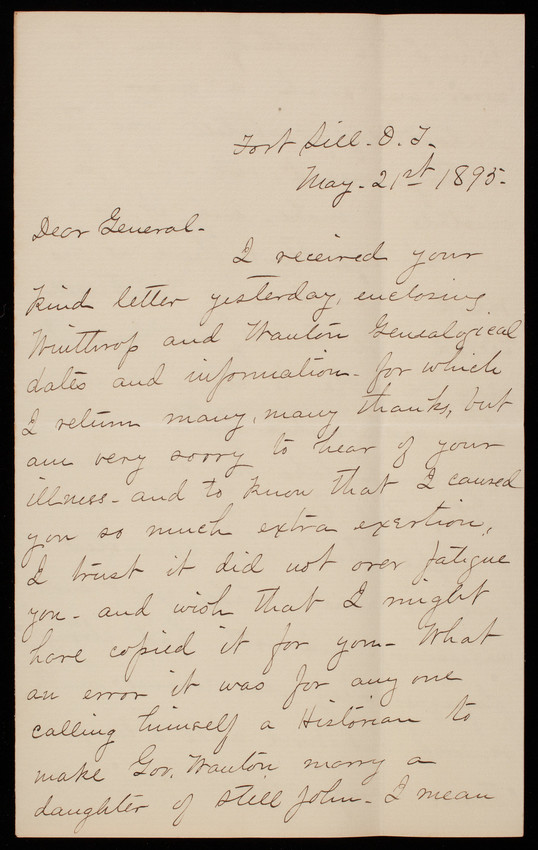 Fort Sill. O. T.
May. 21st 1895.
Dear General.
I received your
kind letter yesterday, enclosing
Winthrop and Wanton Genealogical
dates and information - for which
I return many, many thanks, but
am very sorry to hear of your
illness - and to know that I caused
you so much extra exertion,
I trust it did not over fatigue
you - and wish that I might
have copied it for you - What
an error it was for any one
calling himself a Historian to
make Gov. Wanton marry a
daughter of still John - I mean